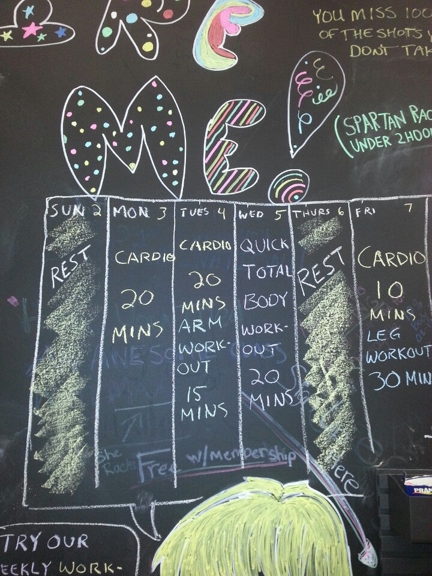 RE
YOU MISS 100
OF THE SHOTS Y
DONT TAK
ME!
(SPARTAN RAC
UNDER 2HOU
SUN 2
REST
MON 3
CARDIO
20
MINS
TUES 4
CARDIO
20
MINS
ARM
WORK-
OUT
15
MINS
WED 5
QUICK
TOTAL
BODY
WORK-
OUT
20
MINS
THURS 6
REST
FRI 7
CARDIO
10
MINS
LEG
WORKOUT
30 MIN
She
Rocks
Free w/membership
here
TRY OUR
EEKLY WORK-